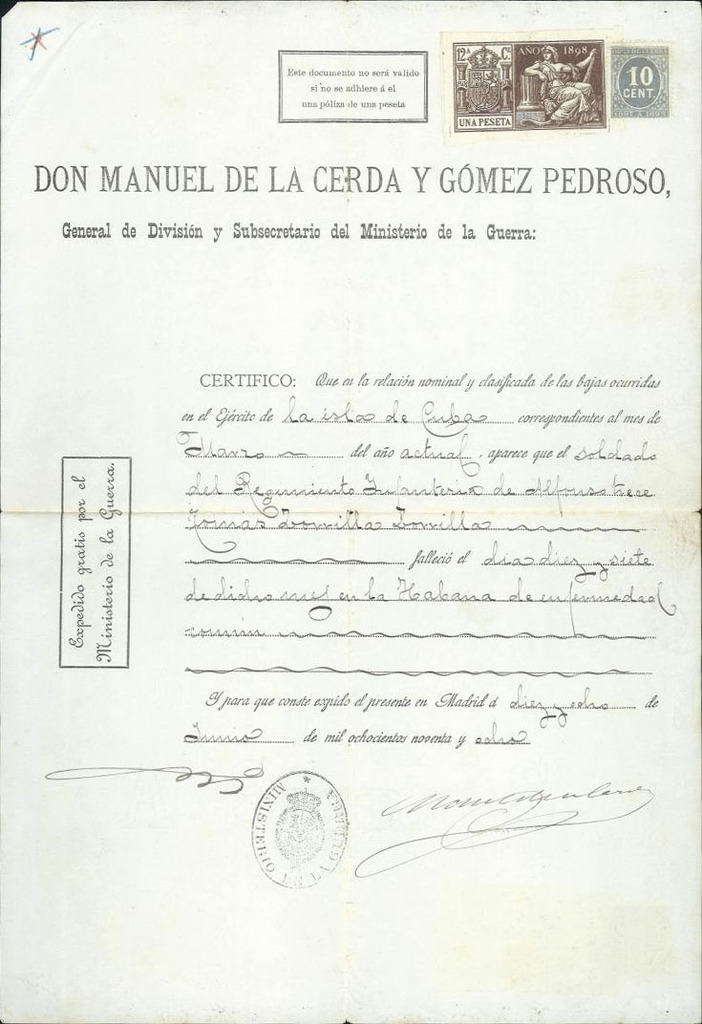 Este documento no será válido
si no se adhiere á el
una póliza de una peseta
12ª Cª AÑO 1898
UNA PESETA
10
CENT.
1897 A 1898
DON MANUEL DE LA CERDA Y GÓMEZ PEDROSO,
General de División y Subsecretario del Ministerio de la Guerra:
CERTIFICO: Que en la relación nominal y clasificada de las bajas ocurridas
en el Ejército de la isla de Cuba correspondientes al mes de
Marzo del año actual, aparece que el soldado
del Regimiento Infanteria de Alfonso trece
Tomás Zorrilla Zorrilla
falleció el dia diez y siete
de dicho mes en la Habana de enfermedad
comun
Y para que conste expido el presente en Madrid á diez y ocho de
Junio de mil ochocientos noventa y ocho
Expedido gratis por el
Ministerio de la Guerra.
MINISTERIO DE LA GUERRA